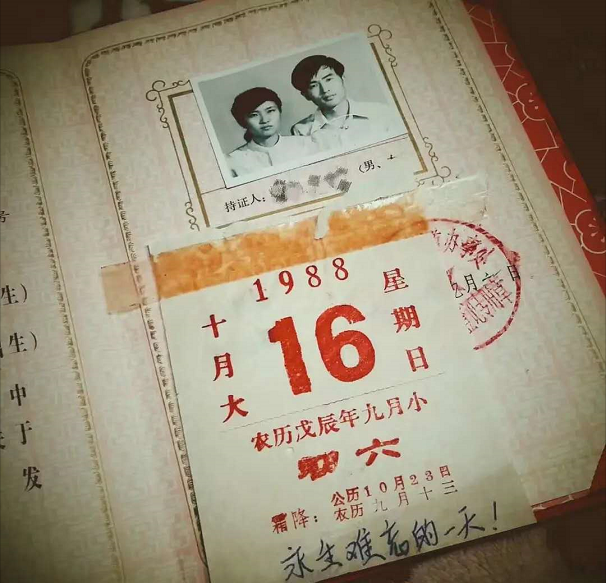 号
生）
生）
中
于
发
持证人：
（男、
月 日
1988
十月大
16
星期日
农历戊辰年九月小
初六
霜降：公历10月23日
农历九月十三
永生难忘的一天！